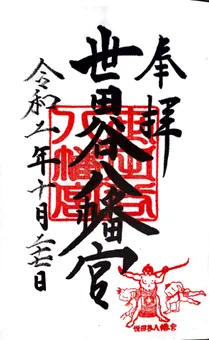 奉拝
世田谷八幡宮
令和二年十月二十七日
世田谷八幡宮
世田谷八幡宮